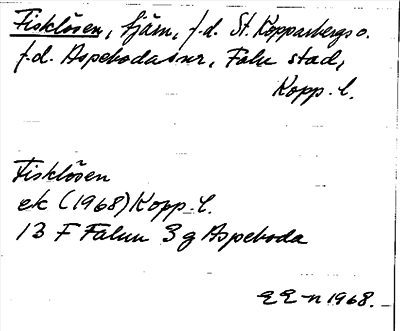 Fisklösen, tjärn, f.d. St. Kopparbergs o.
f.d. Aspeboda snr, Falu stad,
Kopp. l.
Fisklösen
ek (1968) Kopp. l.
13 F Falun 3 g Aspeboda
EE-n 1968.